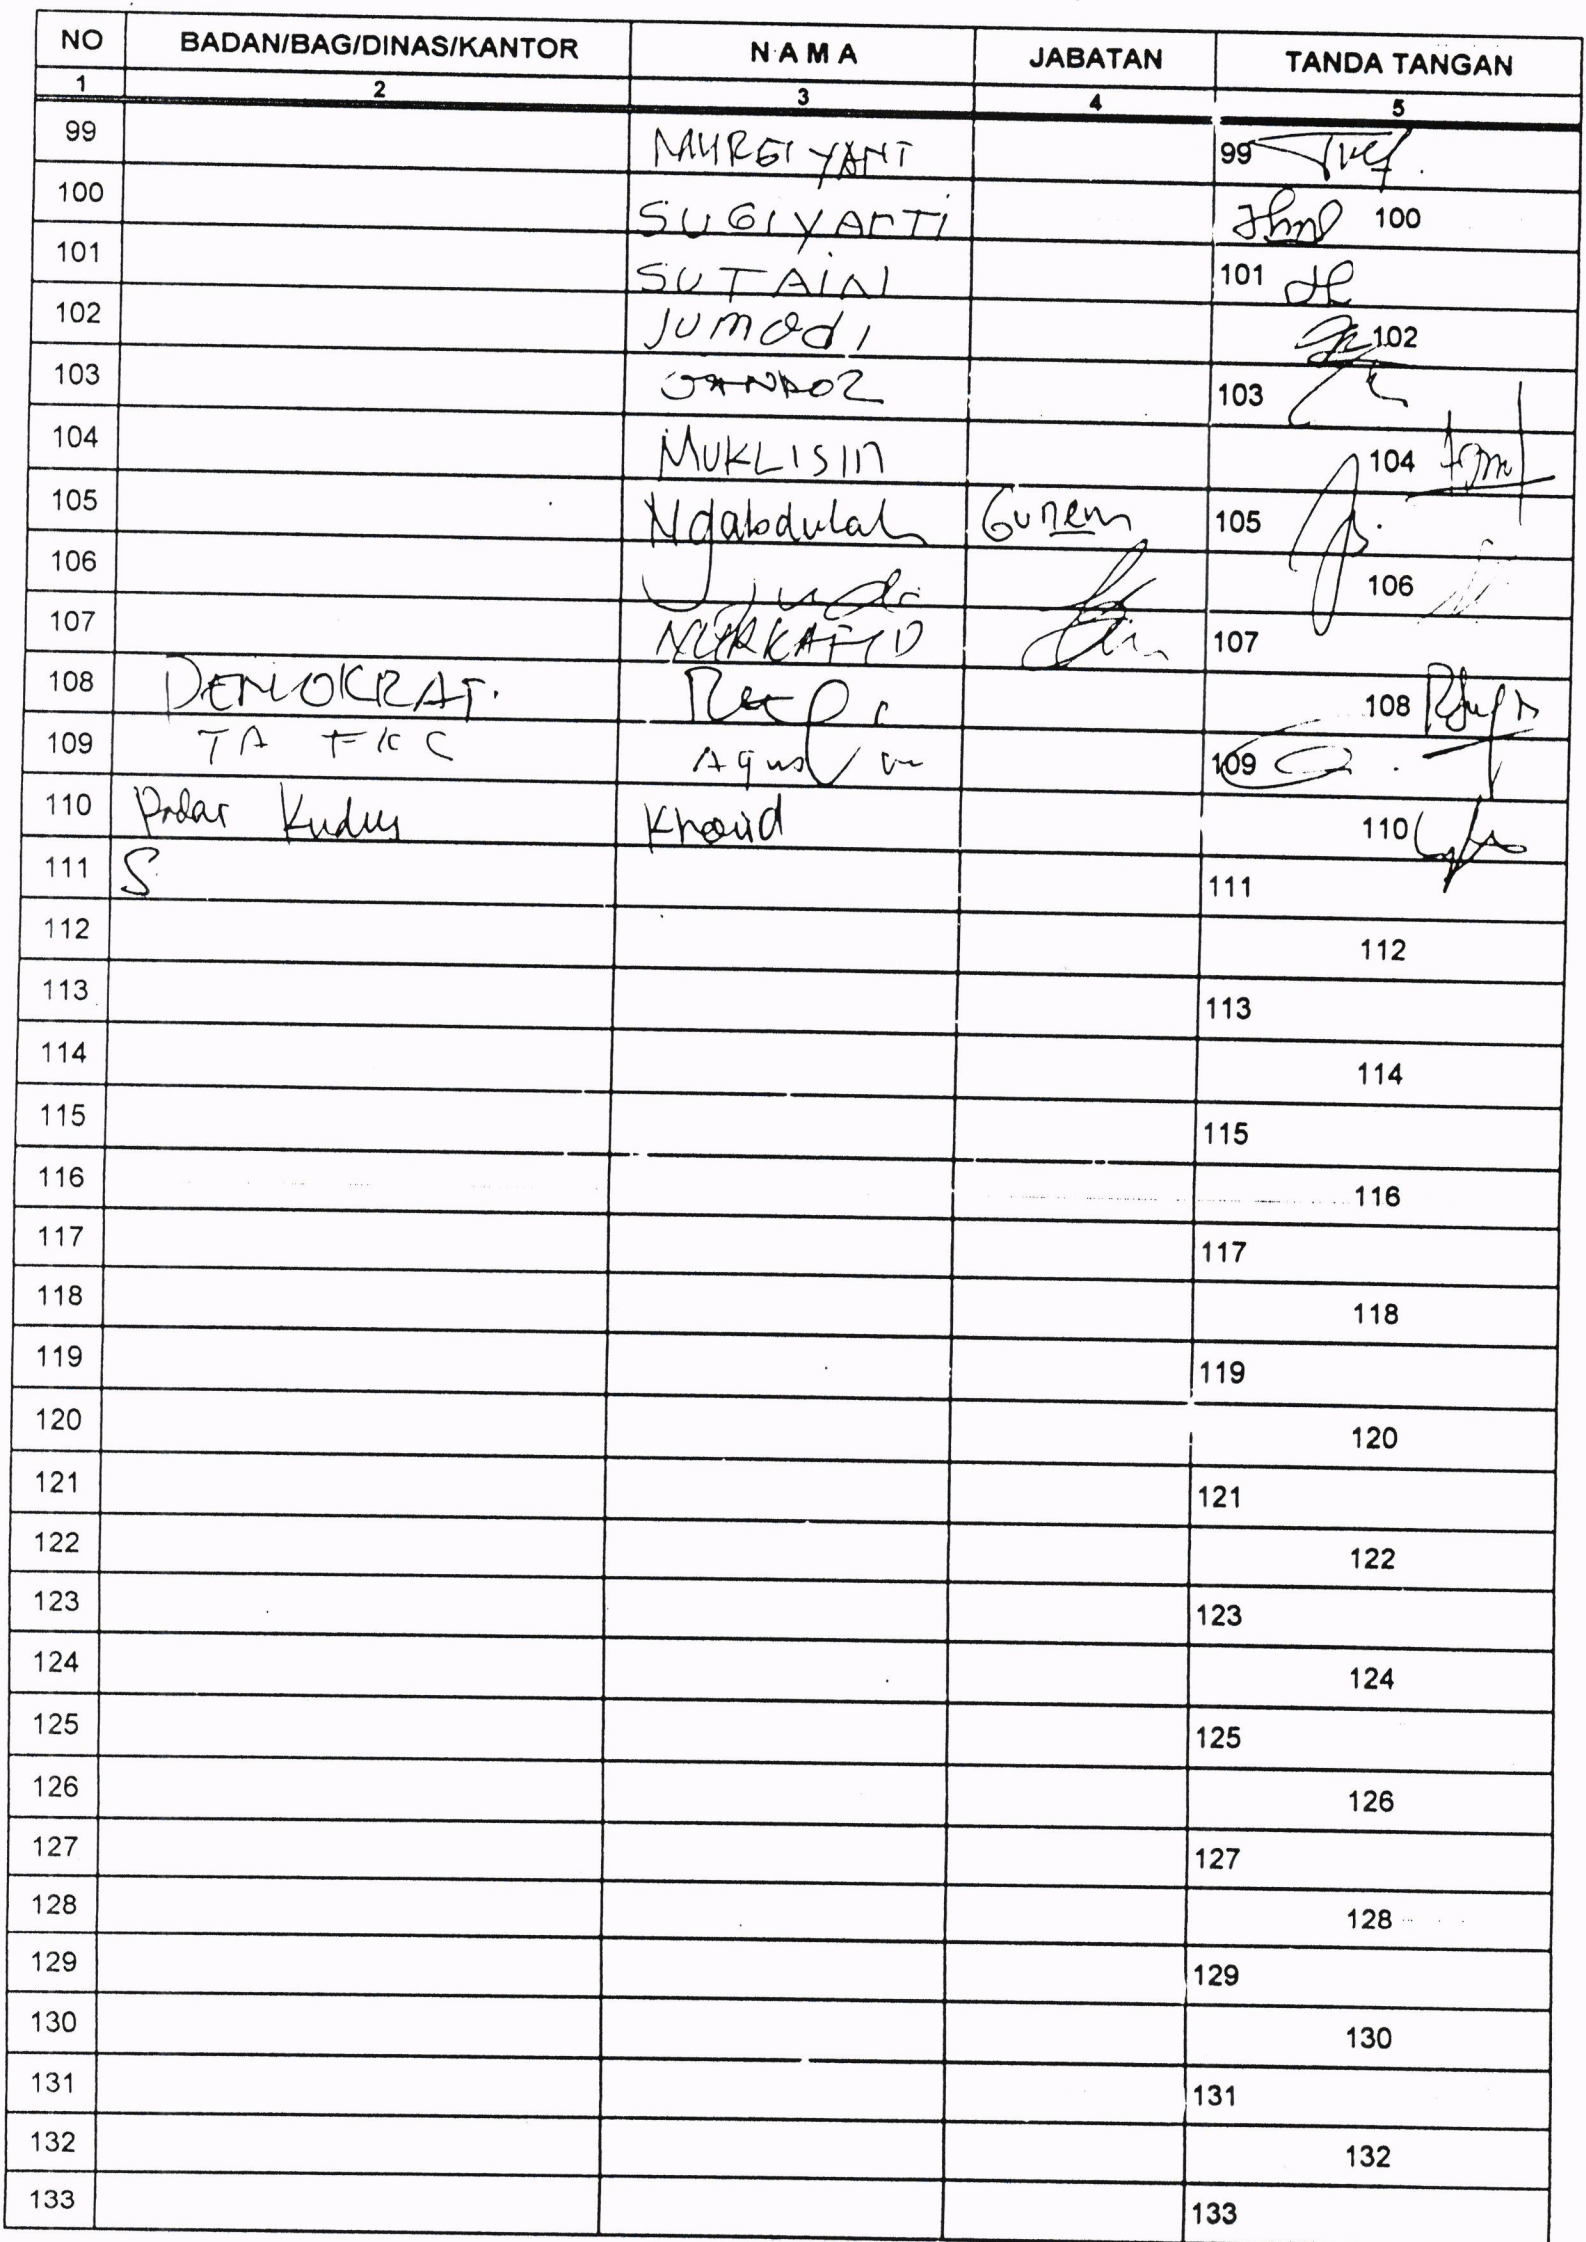 NO BADAN/BAG/DINAS/KANTOR NAMA JABATAN TANDA TANGAN
1 2 3 4 5
99 99
100 SUGIYANTI 100
101 SUTAIN 101
102 Jumadi 102
103 103
104 MUKLISIN 104
105 Ngabdulah Gunem 105
106 106
107 NURKAFID 107
108 DEMOKRAT. 108
109 TA FKC Agus 109
110 Kudus 110
111 S 111
112 112
113 113
114 114
115 115
116 116
117 117
118 118
119 119
120 120
121 121
122 122
123 123
124 124
125 125
126 126
127 127
128 128
129 129
130 130
131 131
132 132
133 133